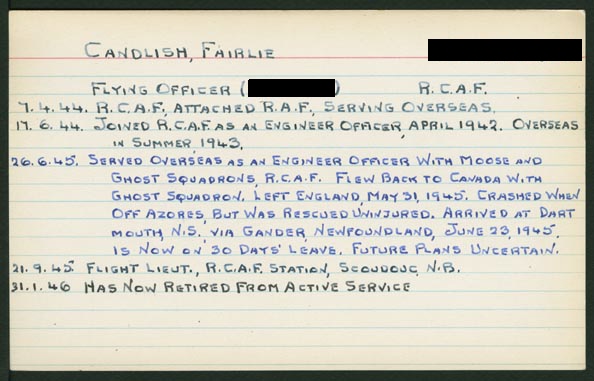 CANDLISH, FAIRLIE
FLYING OFFICER ( ) R.C.A.F.
7.4.44. R.C.A.F., ATTACHED R.A.F., SERVING OVERSEAS.
17.6.44. JOINED R.C.A.F. AS AN ENGINEER OFFICER, APRIL 1942. OVERSEAS
IN SUMMER, 1943.
26.6.45. SERVED OVERSEAS AS AN ENGINEER OFFICER WITH MOOSE AND
GHOST SQUADRONS, R.C.A.F. FLEW BACK TO CANADA WITH
GHOST SQUADRON. LEFT ENGLAND, MAY 31, 1945. CRASHED WHEN
OFF AZORES, BUT WAS RESCUED UNINJURED. ARRIVED AT DART
MOUTH, N.S., VIA GANDER, NEWFOUNDLAND, JUNE 23, 1945.
IS NOW ON 30 DAYS' LEAVE. FUTURE PLANS UNCERTAIN.
21.9.45 FLIGHT LIEUT., R.C.A.F. STATION, SCOUDOUC, N.B.
31.1.46 HAS NOW RETIRED FROM ACTIVE SERVICE